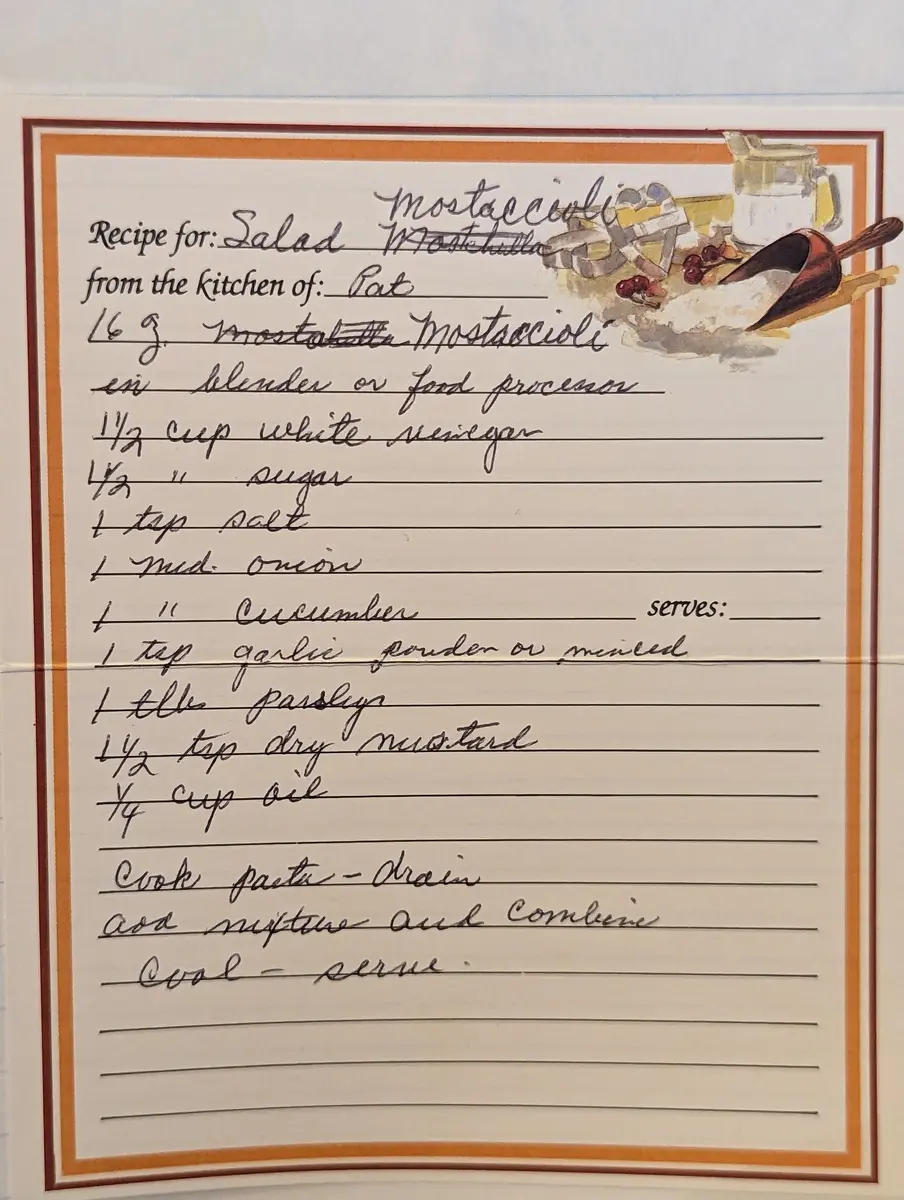 Mostaccioli
Recipe for: Salad Mostchulla
from the kitchen of: Pat
16 oz. Mostaccioli
in blender or food processor
1 1/2 cup white vinegar
1 1/2 " sugar
1 tsp salt
1 med. onion
1 " cucumber serves:
1 tsp garlic powder or minced
1 tlb parsley
1 1/2 tsp dry mustard
1/4 cup oil
Cook pasta - drain
add mixture and combine
Cool - serve.